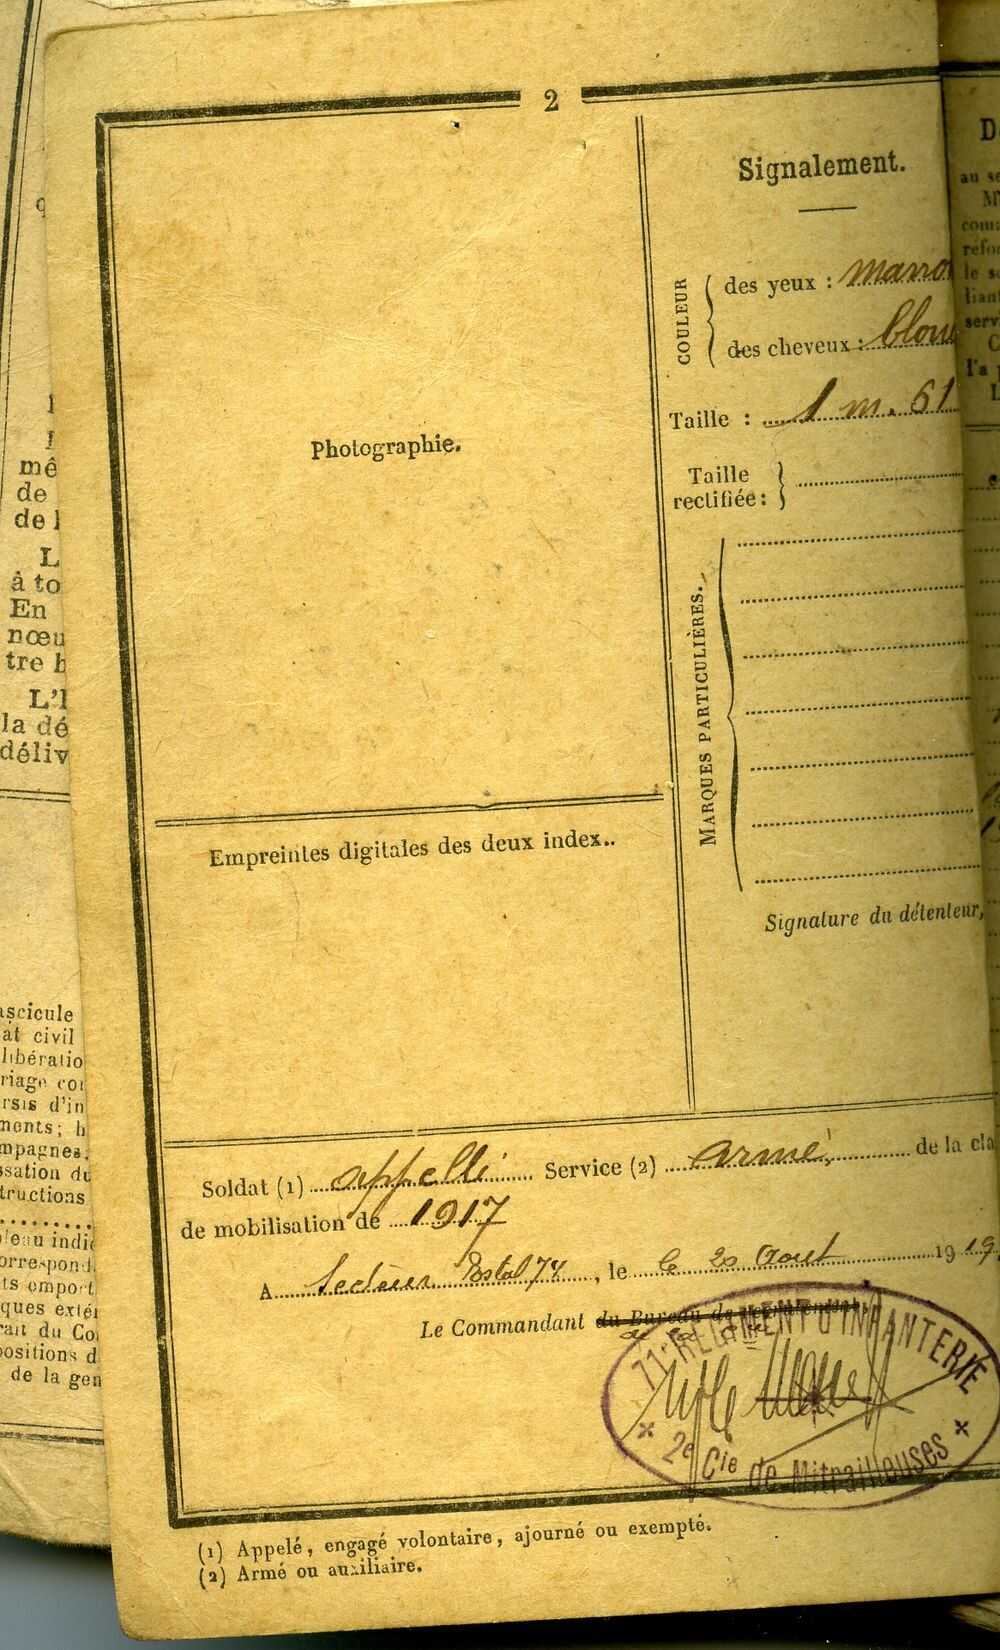 2
Photographie.
Empreintes digitales des deux index..
Signalement.
COULEUR
des yeux : marro
des cheveux : blon
Taille : 1 m. 61
Taille
rectifiée :
MARQUES PARTICULIÈRES.
Signature du détenteur,
Soldat (1) appellé Service (2) armé de la cla
de mobilisation de 1917
A Secteur Postal 74, le le 20 Aout 1919
Le Commandant du Bureau de recrutement,
71e REGIMENT D'INFANTERIE
* 2e Cie de Mitrailleuses *
(1) Appelé, engagé volontaire, ajourné ou exempté.
(2) Armé ou auxiliaire.
mê
de
de l
L
à to
En
nœu
tre h
L'I
la dé
déliv
ascicule
at civil
libératio
riage cor
rsis d'in
ments; h
mpagnes,
ssation du
tructions
eau indi
orrespond
ts emport
ques extér
rait du Co
positions d
de la gen
D
au se
M
com
refo
le s
lian
serv
C
l'a
L